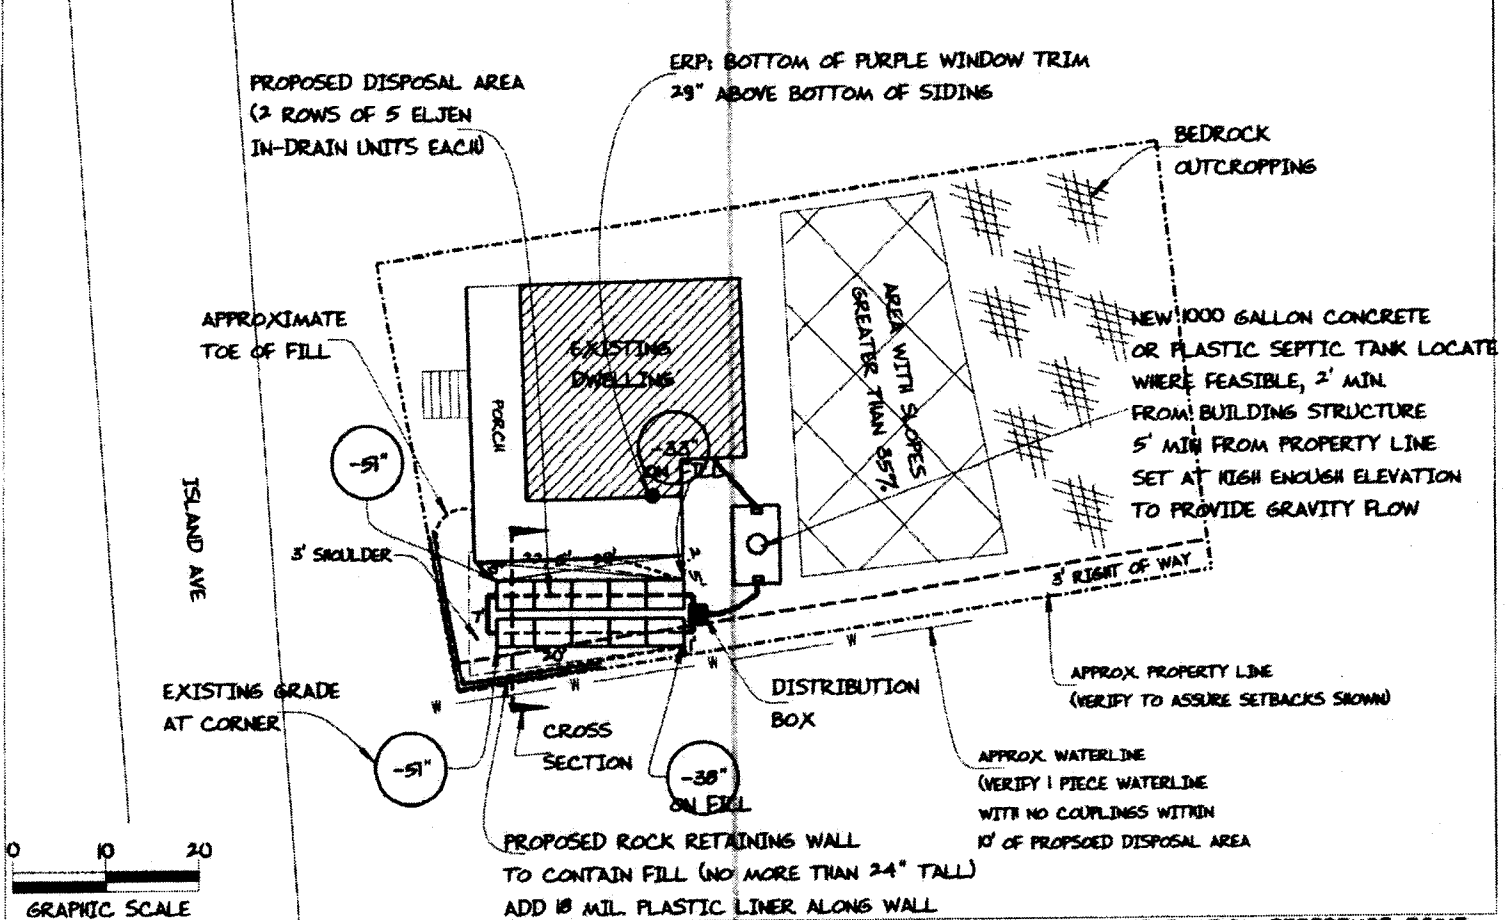 PROPOSED DISPOSAL AREA
(2 ROWS OF 5 ELJEN
IN-DRAIN UNITS EACH)
ERP: BOTTOM OF PURPLE WINDOW TRIM
29" ABOVE BOTTOM OF SIDING
BEDROCK
OUTCROPPING
APPROXIMATE
TOE OF FILL
EXISTING
DWELLING
PORCH
AREA WITH SLOPES
GREATER THAN 35%
NEW 1000 GALLON CONCRETE
OR PLASTIC SEPTIC TANK LOCATE
WHERE FEASIBLE, 2' MIN.
FROM BUILDING STRUCTURE
5' MIN FROM PROPERTY LINE
SET AT HIGH ENOUGH ELEVATION
TO PROVIDE GRAVITY FLOW
-33"
ON FILL
-51"
ISLAND AVE
3' SHOULDER
3' RIGHT OF WAY
20'
W
W
W
W
EXISTING GRADE
AT CORNER
-51"
CROSS
SECTION
-38"
ON FILL
DISTRIBUTION
BOX
APPROX. PROPERTY LINE
(VERIFY TO ASSURE SETBACKS SHOWN)
APPROX. WATERLINE
(VERIFY 1 PIECE WATERLINE
WITH NO COUPLINGS WITHIN
10' OF PROPSOED DISPOSAL AREA
PROPOSED ROCK RETAINING WALL
TO CONTAIN FILL (NO MORE THAN 24" TALL)
ADD 18 MIL. PLASTIC LINER ALONG WALL
0 10 20
GRAPHIC SCALE